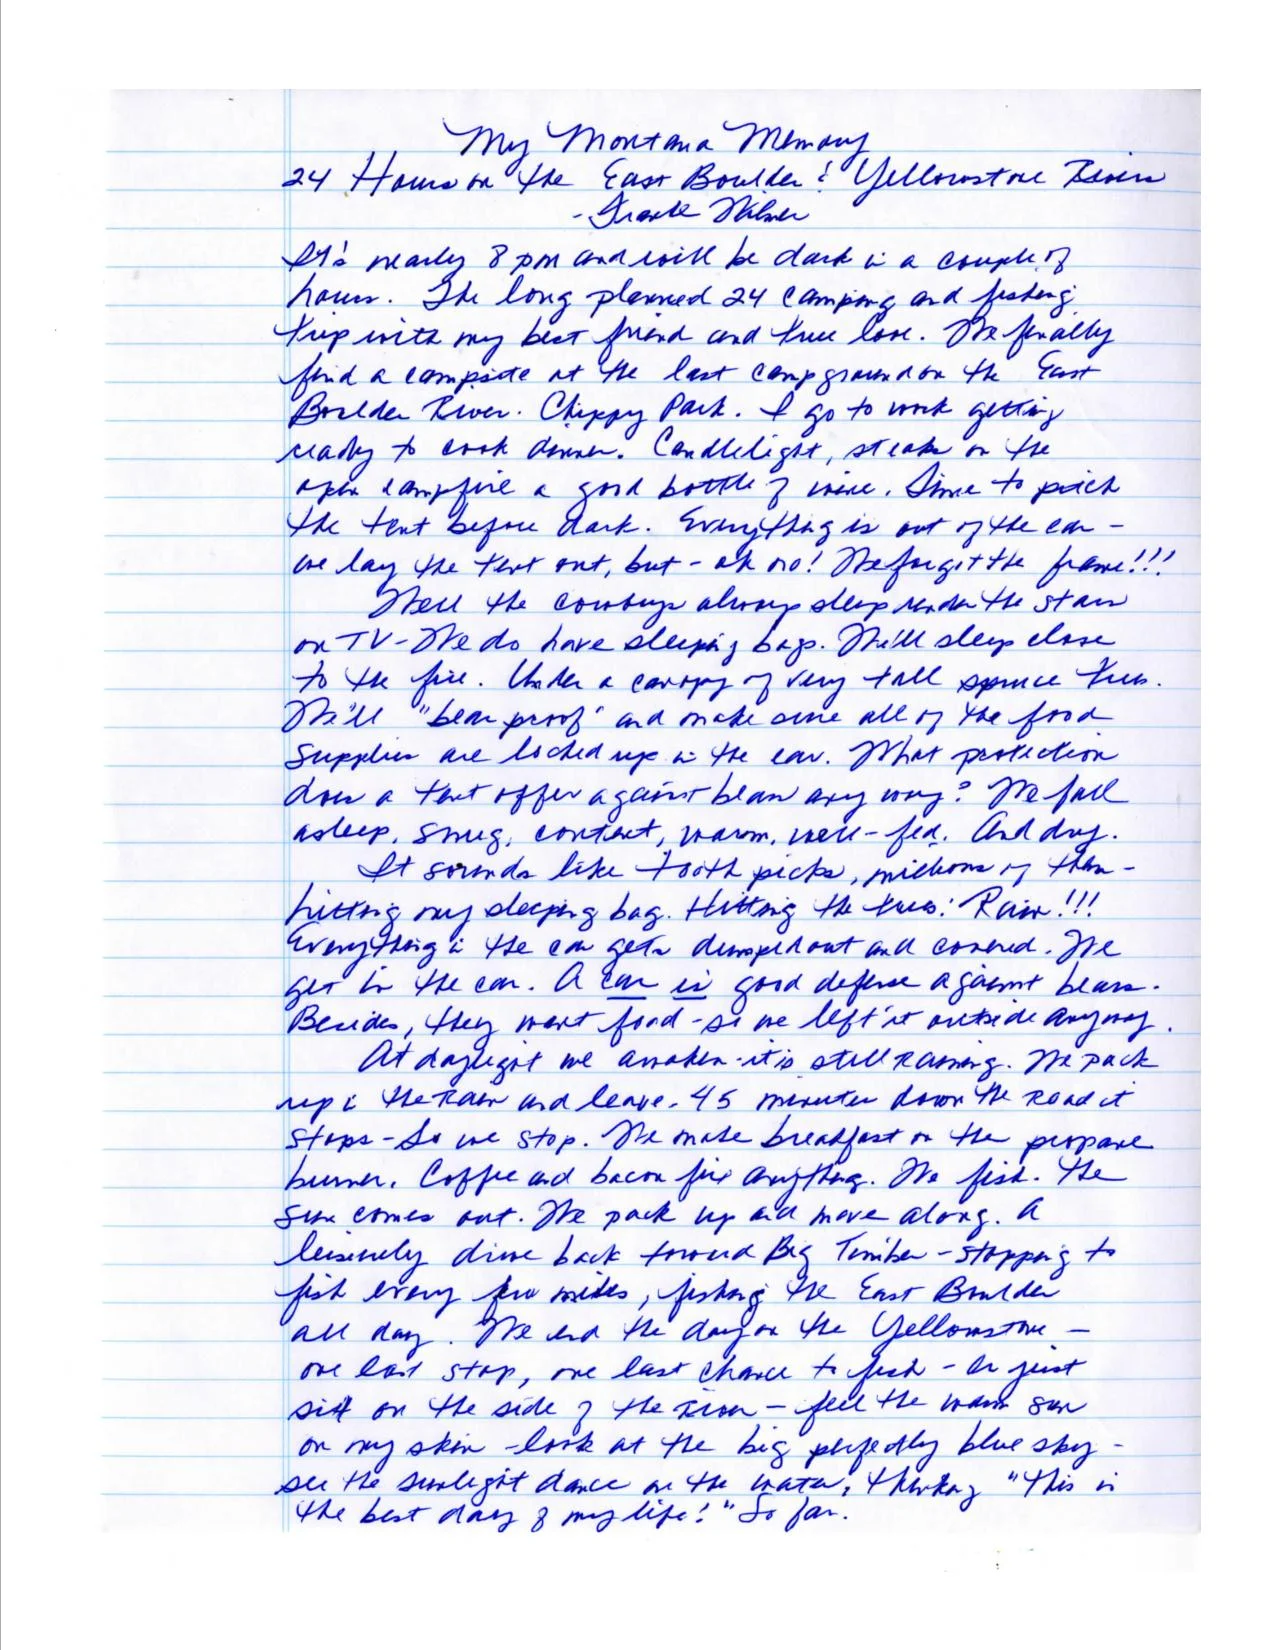 My Montana Memory
24 Hours on the East Boulder & Yellowstone Rivers
- Wilmer
It's nearly 8 pm and will be dark in a couple of
hours. The long planned 24 camping and fishing
trip with my best friend and true love. We finally
find a campsite at the last campground on the East
Boulder River. Chippy Park. I go to work getting
ready to cook dinner. Candlelight, steaks on the
open campfire a good bottle of wine. Time to pitch
the tent before dark. Everything is out of the car -
we lay the tent out, but - oh no! We forgot the frame!!!
Well the cowboys always sleep under the stars
on TV - We do have sleeping bags. We'll sleep close
to the fire. Under a canopy of very tall spruce trees.
We'll "bear proof" and make sure all of the food
supplies are locked up in the car. What protection
does a tent offer against bears any way? We fall
asleep, snug, content, warm, well-fed. And dry.
It sounds like tooth picks, millions of them -
hitting my sleeping bag. Hitting the trees! Rain!!!
Everything in the car gets dumped out and covered. We
get in the car. A car is good defense against bears.
Besides, they want food - so we left it outside anyway.
At daylight we awaken - it is still raining. We pack
up in the rain and leave. 45 minutes down the road it
stops - So we stop. We make breakfast on the propane
burner. Coffee and bacon fix anything. We fish. The
sun comes out. We pack up and move along. A
leisurely drive back toward Big Timber - stopping to
fish every few miles, fishing the East Boulder
all day. We end the day on the Yellowstone -
one last stop, one last chance to fish - Or just
sit on the side of the river - feel the warm sun
on my skin - look at the big perfectly blue sky -
see the sunlight dance on the water, thinking "This is
the best day of my life!" So far.